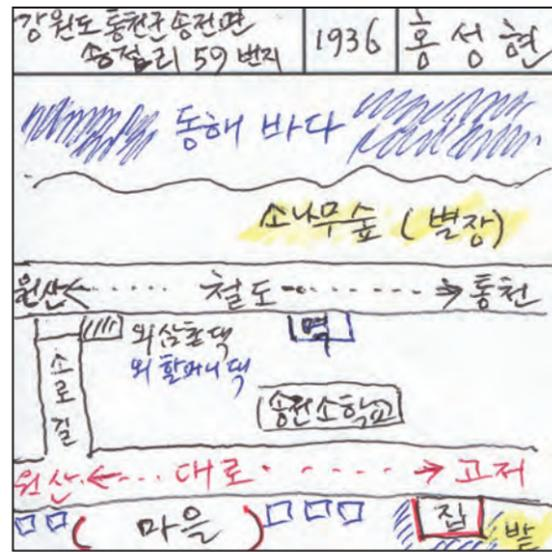 강원도 통천군 송전면
송전리 59 번지
1936
홍성현
동해 바다
소나무숲 (별장)
원산 ← 철도 → 통천
외삼촌댁
역
외할머니댁
소로길
송전소학교
원산 ← 대로 → 고저
마을
집
밭